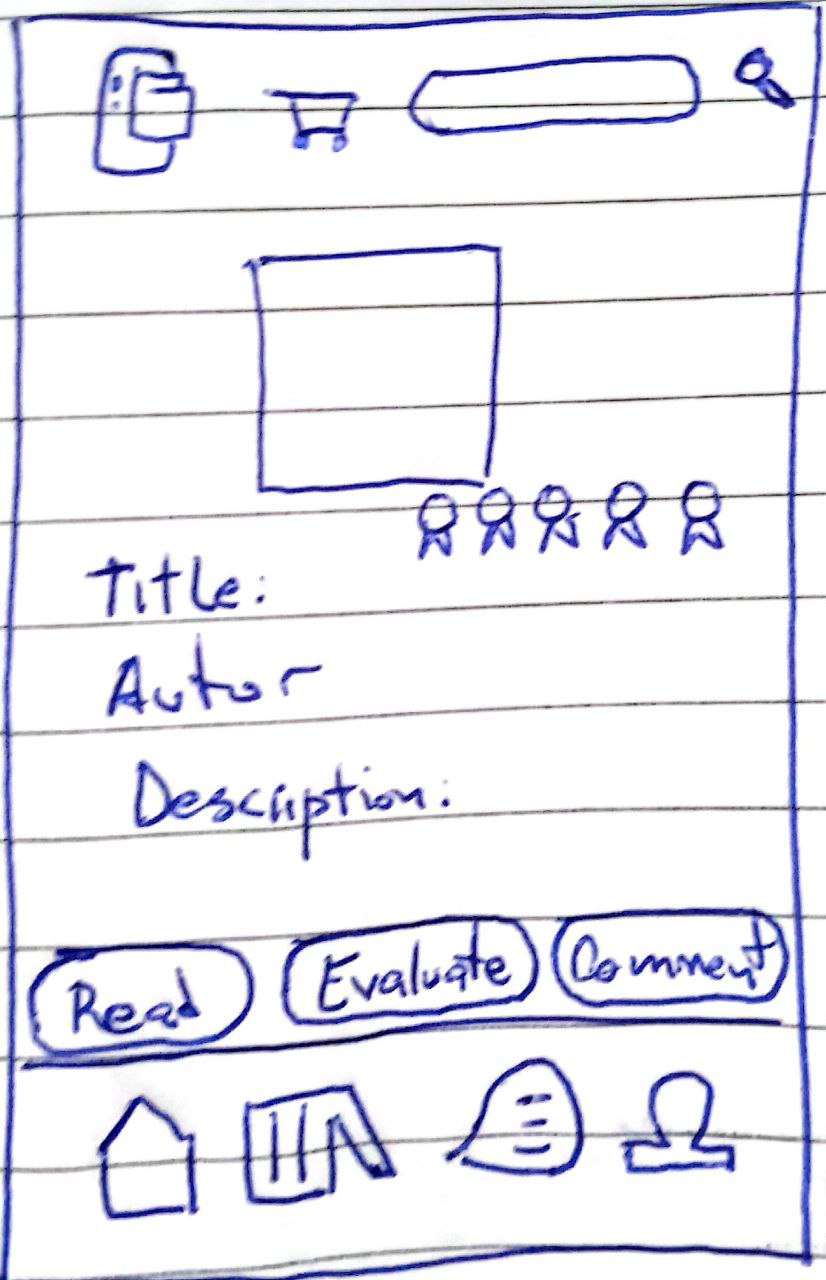 Title:
Autor
Description:
Read Evaluate Comment